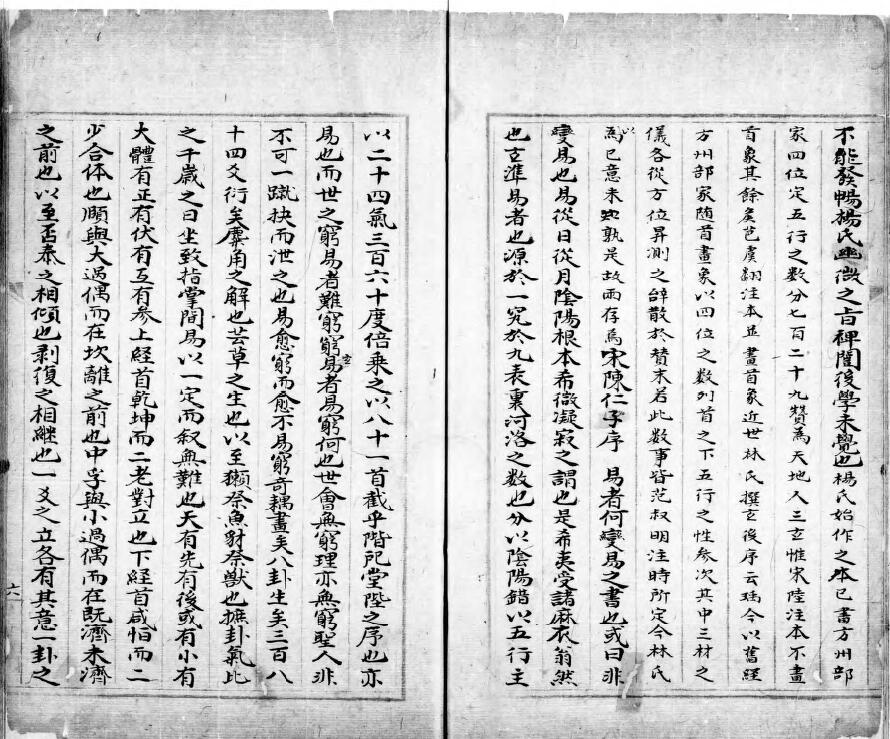 不能發暢楊氏幽微之旨稗闇後學未覺也楊氏始作之本已畫方州部
家四位定五行之数分七百二十九赞為天地人三玄惟宋陸注本不畫
首象其餘矣芭虞翻注本並畫首象近世林氏撰玄後序云瑀今以舊經
方州部家随首畫象以四位之数列首之下五行之性参次其中三材之
儀各從方位昇測之辞散於賛末若此数事皆范叔明注時所定今林氏
以為已意未知孰是故兩存焉宋陳仁子序 易者何變易之書也或曰非
變易也易從日從月陰陽根本希微凝寂之謂也是希夷受諸麻衣翁然
也玄準易者也源於一究於九表裏河洛之数也分以陰陽錯以五行主
以二十四氣三百六十度倍乘之以八十一首截乎階阤堂陛之序也亦
易也而世之窮易者難窮窮玄易者易窮何也世會無窮理亦無窮聖人非
不可一蹴抉而泄之也易愈窮而愈不易窮奇耦畫矣八卦生矣三百八
十四爻衍矣麋角之解也芸草之生也以至獺祭魚豺祭獸也摭卦氣比
之千歲之日坐致指掌間易以一定而叙無難也天有先有後或有小有
大體有正有伏有互有参上経首乾坤而二老對立也下経首咸恒而二
少合体也頤與大過偶而在坎離之前也中孚與小過偶而在既濟未濟
之前也以至否泰之相傾也剥復之相繼也一爻之立各有其意一卦之
六